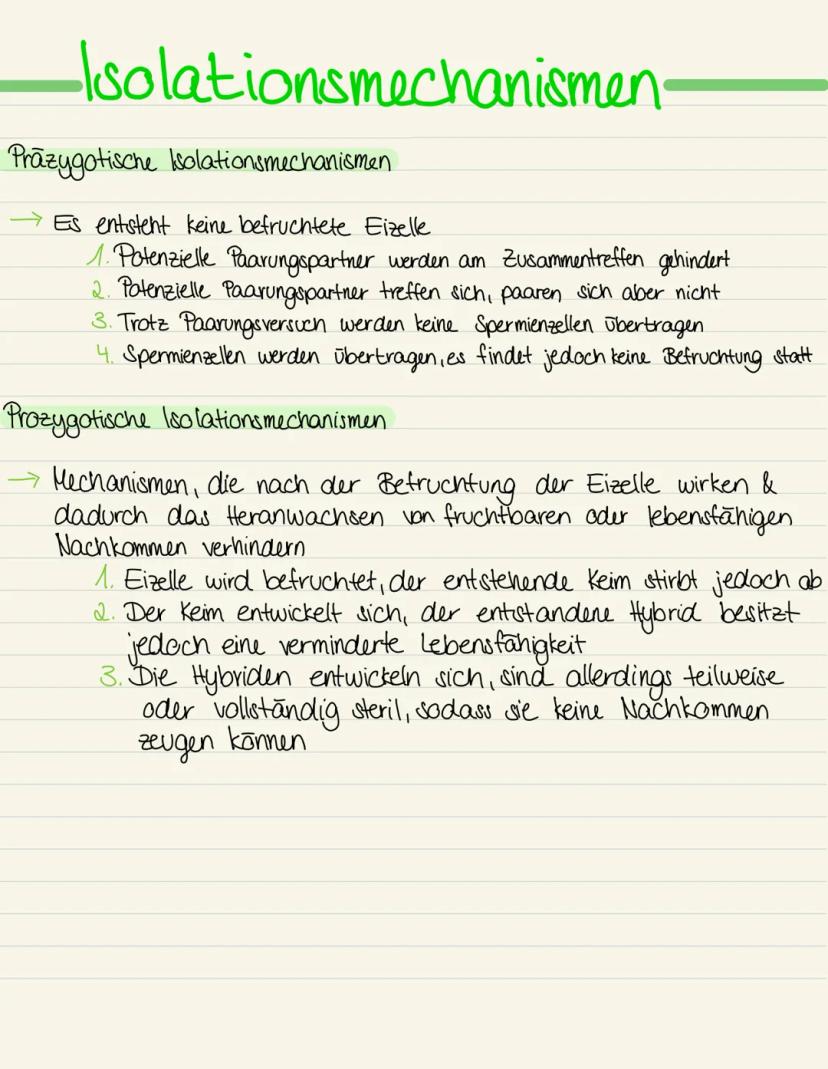 Isolationsmechanismen
Präzygotische Isolationsmechanismen
→ Es entsteht keine befruchtete Eizelle
1. Potenzielle Paarungspartner werden am Zusammentreffen gehindert
2. Potenzielle Paarungspartner treffen sich, paaren sich aber nicht
3. Trotz Paarungsversuch werden keine Spermienzellen übertragen
4. Spermienzellen werden übertragen, es findet jedoch keine Befruchtung statt
Prozygotische Isolationsmechanismen
→ Mechanismen, die nach der Befruchtung der Eizelle wirken &
dadurch das Heranwachsen von fruchtbaren oder lebensfähigen
Nachkommen verhindern
1. Eizelle wird befruchtet, der entstehende Keim stirbt jedoch ab
2. Der Keim entwickelt sich, der entstandene Hybrid besitzt
jedoch eine verminderte Lebensfähigkeit
3. Die Hybriden entwickeln sich, sind allerdings teilweise
oder vollständig steril, sodass sie keine Nachkommen
zeugen können